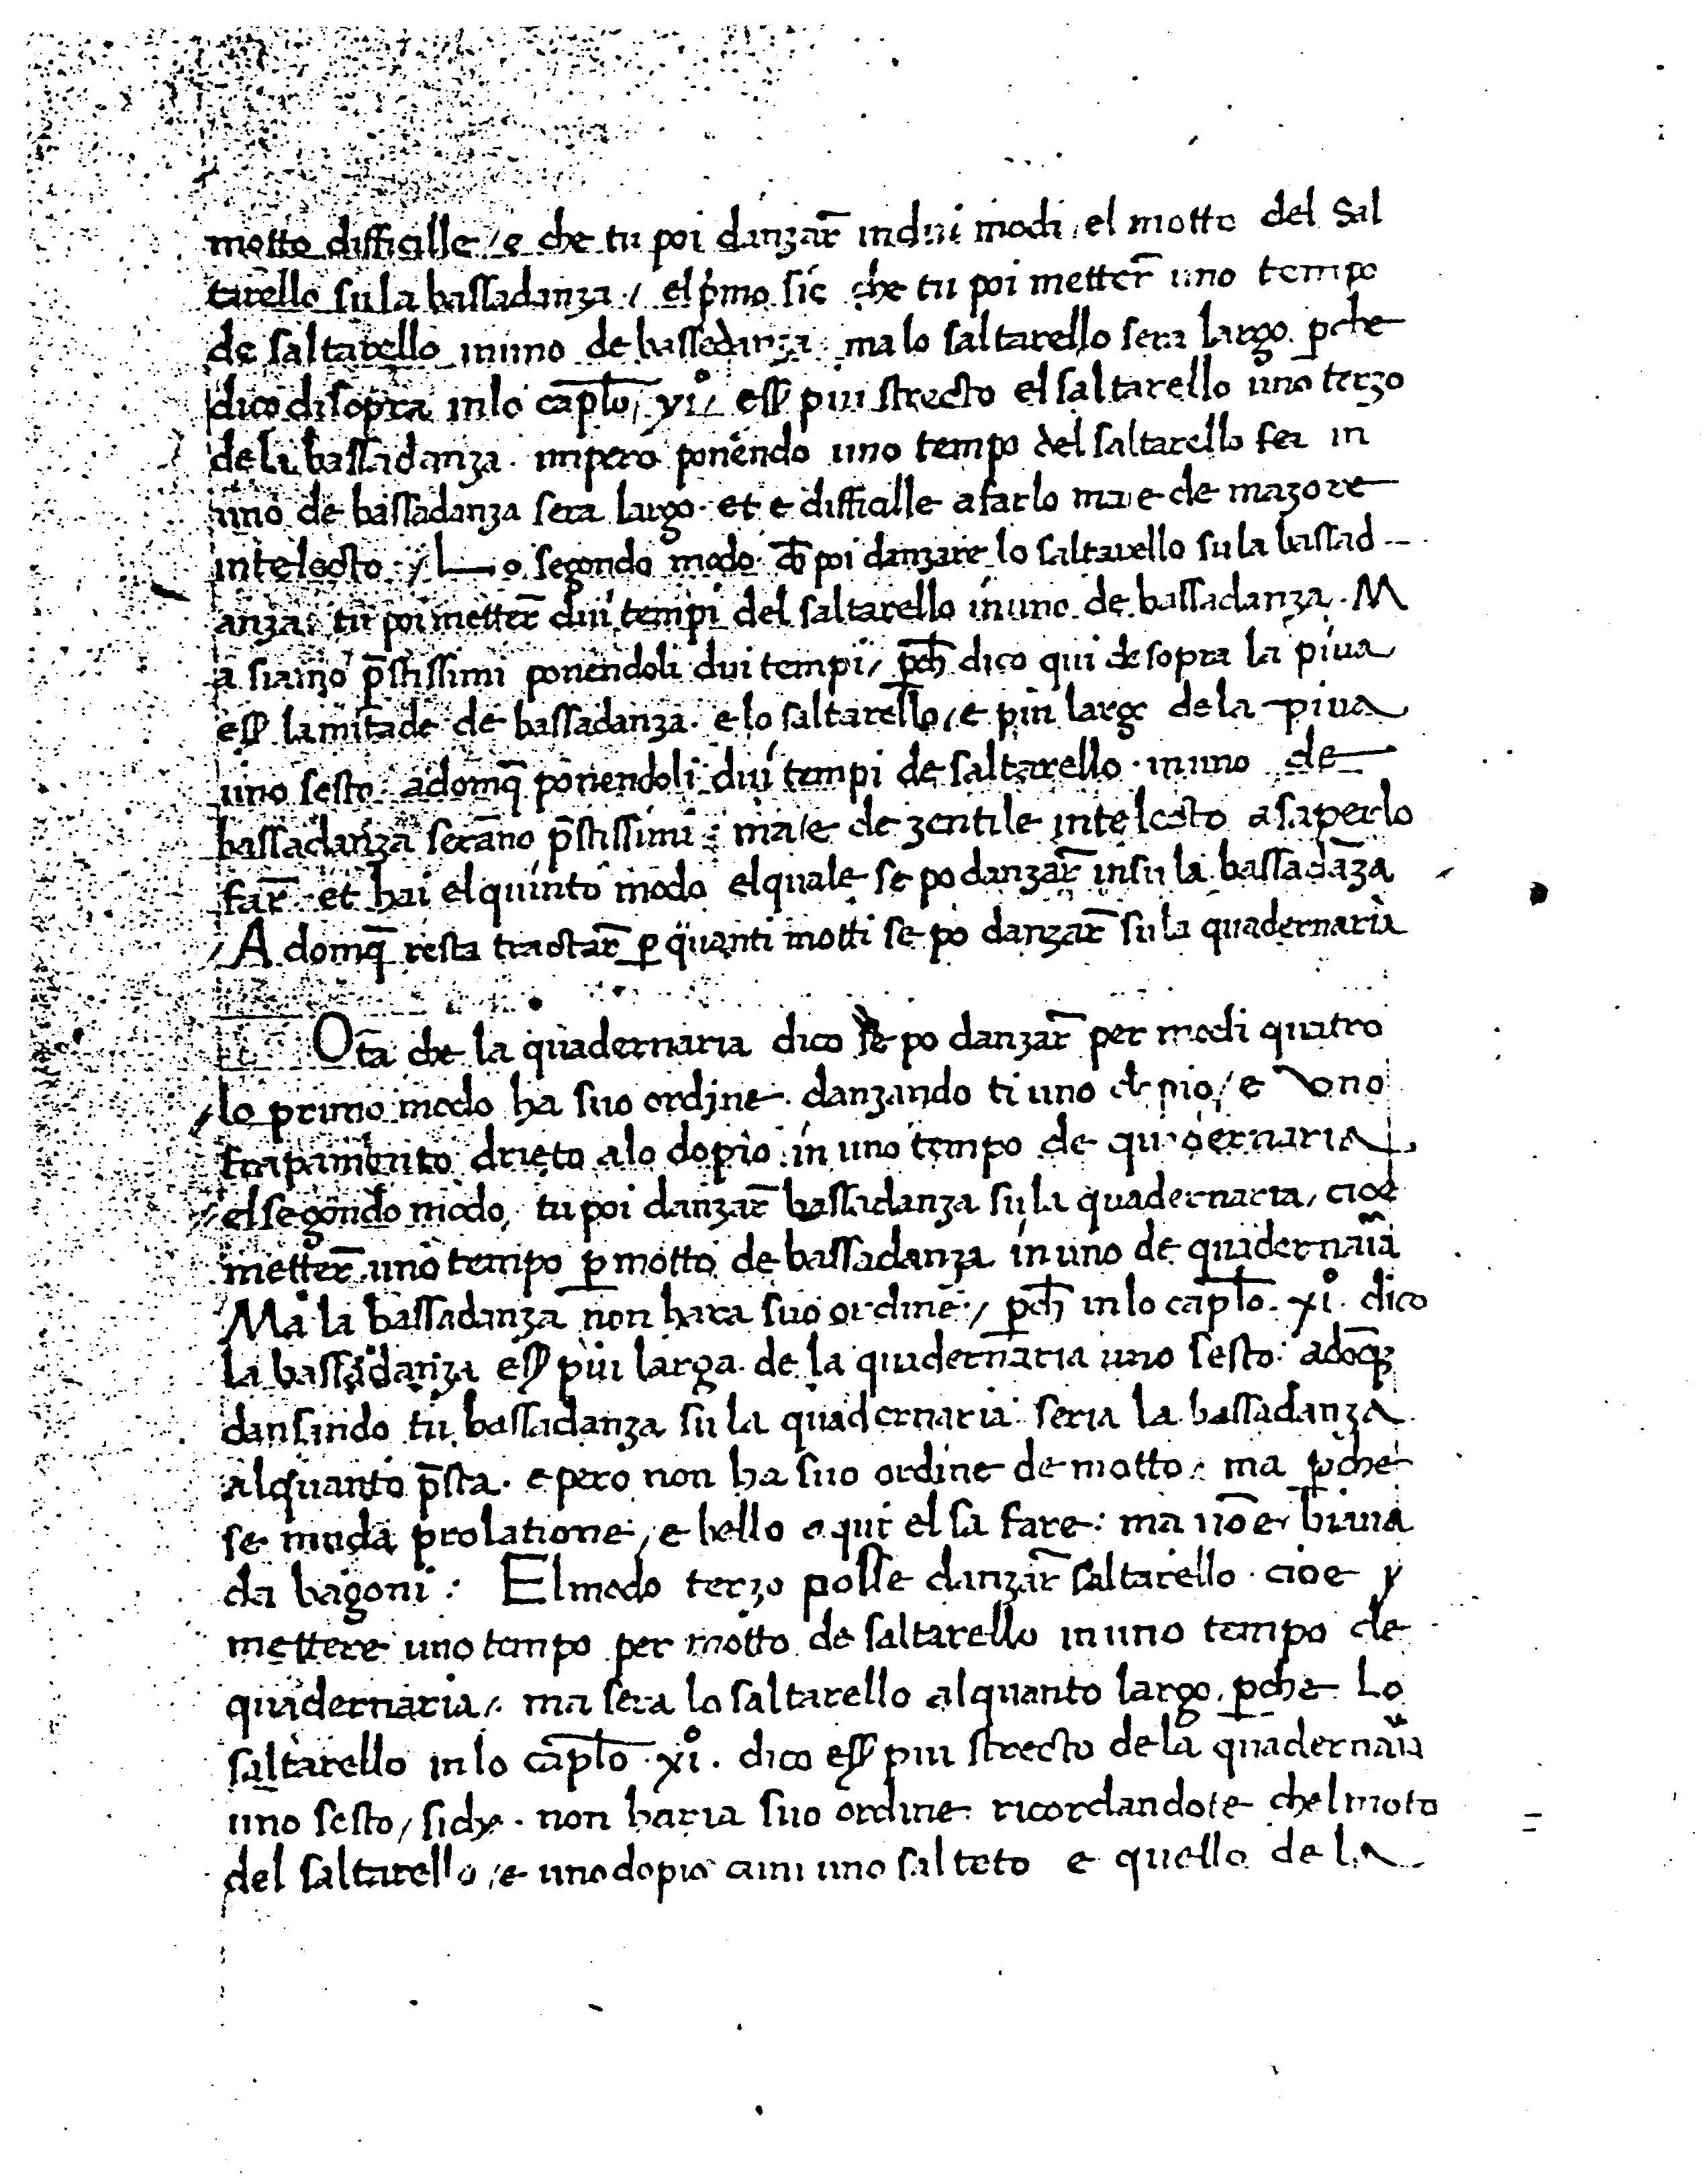 motto difficille / e che tu poi danzar̄ in dui modi / el motto del Sal
tarello su la bassadanza · / el p̄mo sie che tu poi metter̄ uno tempo
de saltarello in uno de bassedanza · ma lo saltarello sera largo · ꝑche
dico di sopra in lo cap̄lo / xi° / eſſ piu strecto el saltarello uno terzo
de la bassadanza · impero ponendo uno tempo del saltarello in
uno de bassadanza sera largo · et e difficille a farlo ma e de mazore
intelecto · / Lo segondo modo · ch̄ poi danzare lo saltarello su la bassad
anza · tu poi metter̄ dui tempi del saltarello in uno de bassadanza · M
a siano p̄stissimi ponendoli dui tempi / ꝑch̄ dico qui de sopra la piua
eſſ la mitade de bassadanza · e lo saltarello / e piu largo de la piua
uno sesto · adomq̄ ponendoli dui tempi de saltarello · in uno de
bassadanza seran̄o p̄stissimi · ma / e de zentile intelecto a saperlo
far̄ · et hai el quinto modo el quale se po danzar̄ in su la bassadāza
/ Adomq̄ resta tractar̄ ꝑ quanti motti se po danzar̄ su la quadernaria
Ota che la quadernaria dico se po danzar̄ per modi quatro
/ lo primo modo ha suo ordine · danzando ti uno dopio / e uno
frapamento drieto a lo dopio in uno tempo de quadernaria
/ el segondo modo, tu poi danzar̄ bassadanza su la quadernaria / cioe
metter̄ uno tempo ꝑ motto de bassadanza in uno de quadernar̃ia
Ma la bassadanza non hara suo ordine · / ꝑch̄ in lo cap̄lo · xi° · dico
la bassadanza eſſ piu larga · de la quadernaria uno sesto · adōq̄
dansando tu bassadanza su la quadernaria seria la bassadanza
alquanto p̄sta · e pero non ha suo ordine de motto · ma ꝑche
se muda prolatione / e bello a qui el sa fare : ma nō e biaua
da bagoni : El modo terzo posse danzar̄ saltarello · cioe
mettere uno tempo per motto de saltarello in uno tempo de
quadernaria / · ma sera lo saltarello alquanto largo · ꝑche Lo
saltarello in lo cap̄lo · xi° · dico eſſ piu strecto de la quadernar̃ia
uno sesto / siche · non haria suo ordine · ricordandote chel moto
del saltarello / e uno dopio cum uno salteto e quello de la